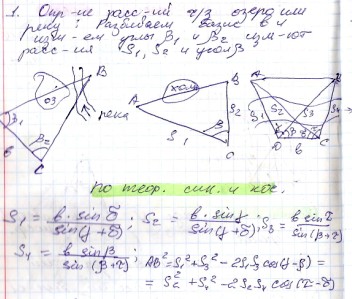 1. Опр-ие расс-ий ч/з озеро или
реку: Разбиваем базис в и
изм-ем углы β1 и β2 изм-ют
расс-ия S1, S2 и угол β
оз
B
река
β1
β2
в
C
холм
A
B
S2
S1
β
C
A
B
S2
S3
S4
D
в
C
по теор. син. и кос.
S1 = в·sin δ / sin(γ+δ); S2 = в·sin γ / sin(γ+δ); S3 = в sin τ / sin(β+τ)
S4 = в sin β / sin(β+τ); AB² = S1² + S3² - 2S1S3 cos(γ-β) =
= S2² + S4² - 2S2S4 cos(τ-δ)